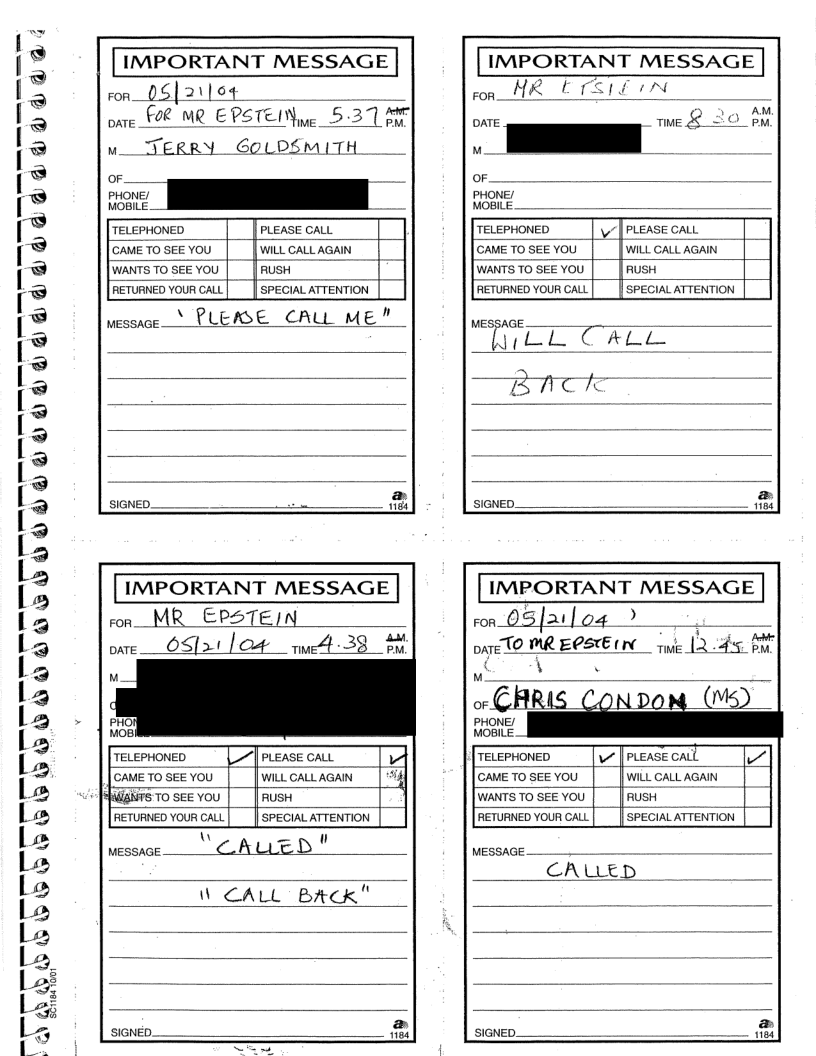 IMPORTANT MESSAGE
FOR 05/21/04
DATE FOR MR EPSTEIN TIME 5.37 A.M. P.M.
M JERRY GOLDSMITH
OF
PHONE/
MOBILE
TELEPHONED PLEASE CALL
CAME TO SEE YOU WILL CALL AGAIN
WANTS TO SEE YOU RUSH
RETURNED YOUR CALL SPECIAL ATTENTION
MESSAGE "PLEASE CALL ME"
SIGNED
a
1184
IMPORTANT MESSAGE
FOR MR ETSIEIN
DATE TIME 8 30 A.M. P.M.
M
OF
PHONE/
MOBILE
TELEPHONED ✓ PLEASE CALL
CAME TO SEE YOU WILL CALL AGAIN
WANTS TO SEE YOU RUSH
RETURNED YOUR CALL SPECIAL ATTENTION
MESSAGE
WILL CALL
BACK
SIGNED
a
1184
IMPORTANT MESSAGE
FOR MR EPSTEIN
DATE 05/21/04 TIME 4.38 A.M. P.M.
M
PHON
MOBI
TELEPHONED ✓ PLEASE CALL ✓
CAME TO SEE YOU WILL CALL AGAIN
WANTS TO SEE YOU RUSH
RETURNED YOUR CALL SPECIAL ATTENTION
MESSAGE "CALLED"
"CALL BACK"
SIGNED
a
1184
IMPORTANT MESSAGE
FOR 05/21/04
DATE TO MR EPSTEIN TIME 12.45 A.M. P.M.
M
OF CHRIS CONDON (MS)
PHONE/
MOBILE
TELEPHONED ✓ PLEASE CALL ✓
CAME TO SEE YOU WILL CALL AGAIN
WANTS TO SEE YOU RUSH
RETURNED YOUR CALL SPECIAL ATTENTION
MESSAGE
CALLED
SIGNED
a
1184
SC1184 10/01